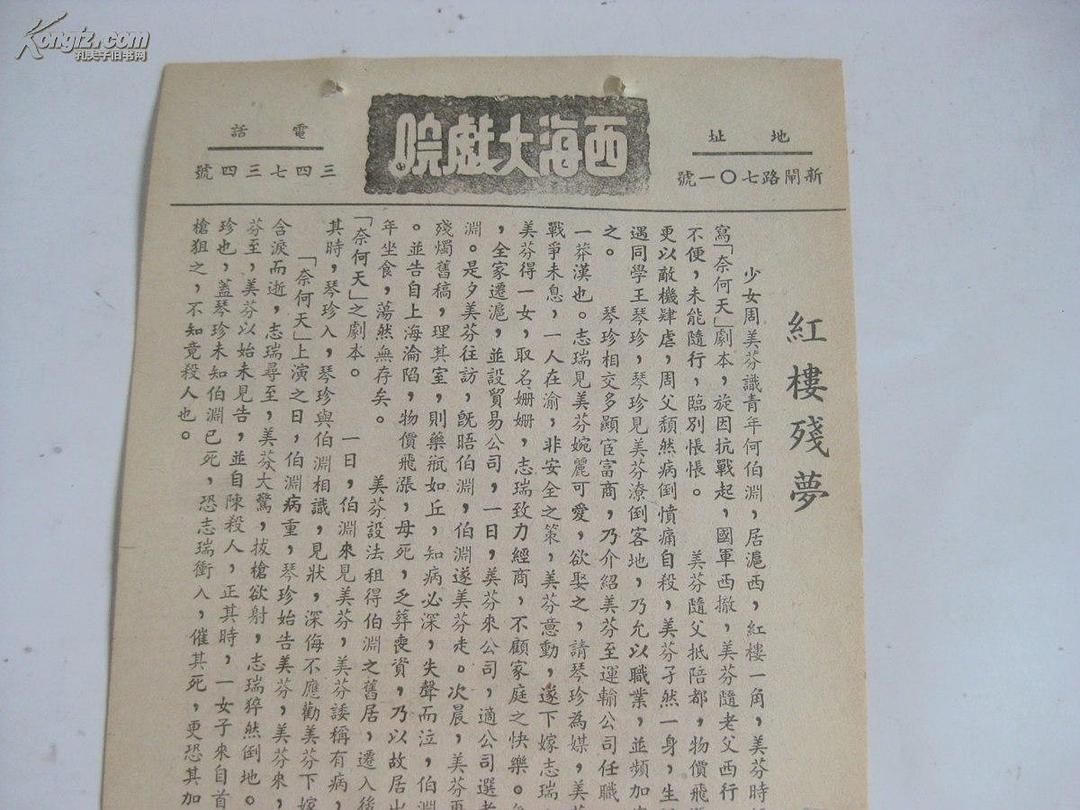 Kongfz.com
孔夫子旧书网
地址
新閘路七〇一號
西海大戲院
電話
三四七三四號
紅樓殘夢
少女周美芬識青年何伯淵，居滬西，紅樓一角，美芬時
寫「奈何天」劇本，旋因抗戰起，國軍西撤，美芬隨老父西行
不便，未能隨行，臨別悵悵。　美芬隨父抵陪都，物價飛
更以敵機肆虐，周父頹然病倒憤痛自殺，美芬孑然一身，生
遇同學王琴珍，琴珍見美芬潦倒客地，乃允以職業，並頻加
之。　琴珍相交多顯宦富商，乃介紹美芬至運輸公司任職
一莽漢也。志瑞見美芬婉麗可愛，欲娶之，請琴珍為媒，美
戰爭未息，一人在渝，非安全之策，美芬意動，遂下嫁志瑞
美芬得一女，取名姍姍，志瑞致力經商，不顧家庭之快樂。
，全家遷滬，並設貿易公司，一日，美芬來公司，適公司選
淵。是夕美芬往訪，旣晤伯淵，伯淵遂美芬走。次晨，美芬
殘燭舊稿，理其室，則藥瓶如丘，知病必深，失聲而泣，伯
。並告自上海淪陷，物價飛漲，母死，乏葬喪資，乃以故居
年坐食，蕩然無存矣。　美芬設法租得伯淵之舊居，遷入後
「奈何天」之劇本。　一日，伯淵來見美芬，美芬諉稱有病，
其時，琴珍入，琴珍與伯淵相識，見狀，深侮不應勸美芬下嫁
「奈何天」上演之日，伯淵病重，琴珍始告美芬，美芬來，
含淚而逝，志瑞尋至，美芬大驚，拔槍欲射，志瑞猝然倒地。
芬至，美芬以始末見告，並自陳殺人，正其時，一女子來自首
珍也，蓋琴珍未知伯淵已死，恐志瑞衝入，催其死，更恐其加
槍狙之，不知竟殺人也。